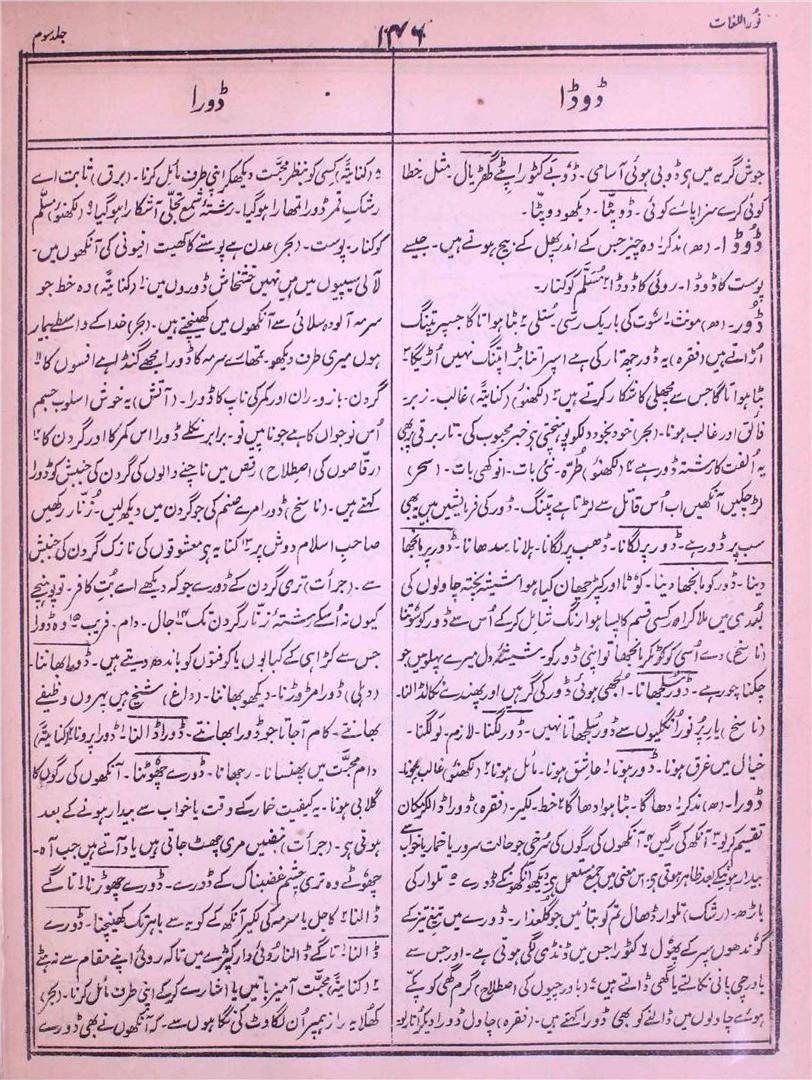 نُوراللغات
۱۳۷۶
جلد سوم
ڈوڈا
ڈورا
جوش گریہ میں ہی ڈوبی ہوئی آسامی۔ ڈوبے کٹورا پٹے گھڑیال۔ مثل خطا
کوئی کرے سزا پائے کوئی۔ ڈوپٹا۔ دیکھو دوپٹا۔
ڈوڈا۔ (ھ) مذکر۱ وہ چیز جس کے اندر پھل کے بیج ہوتے ہیں۔ جیسے
پوست کا ڈوڈا۔ روئی کا ڈوڈا۲ مُسَلَّم کوکنار۔
ڈور۔ (ھ) مونث۱ سُوت کی باریک رسّی۔ سُتلی۲ بٹا ہوا تاگا جسپر پتنگ
اُڑاتے ہیں (فقرہ) یہ ڈور چھ تار کی ہے اسپر اتنا بڑا پتنگ نہیں اُڑیگا۳
بٹا ہوا تاگا جس سے مچھلی کا شکار کرتے ہیں۴ (لکھنؤ) (کنایۃً) غالب۔ زبر۔
فائق اور غالب ہونا۔ (بحر) خود بخود دلکو پہنچتی ہر خبر محبوب کی۔ تار برقی پر بھی
یہ اُلفت کا رشتہ ڈور ہے۵ (لکھنؤ) طُرّہ۔ نئی بات۔ انوکھی بات۔ (سحر)
لڑ چکیں آنکھیں اب اُس قاتل سے لڑتا ہے پتنگ۔ ڈور کی فرمائشیں ہیں یہ بھی
سب پر ڈور ہے۔ ڈور پر لگانا۔ ڈھب پر لگانا۔ ہلانا سدھانا۔ ڈور پر مانجھا
دینا۔ ڈور کو مانجھا دینا۔ کوٹا اور کپڑ چھان کیا ہوا شیشہ پختہ چاولوں کی
لُبدی میں ملا کر اور کسی قسم کا پسا ہوا رنگ شامل کر کے اُس سے ڈور کو سوتنا
(ناسخ) دے اُسی کو کُوٹ کر مانجھا تو اپنی ڈور کو۔ شیشۂ دل میرے پہلو میں جو
چکنا چور ہے۔ ڈور سُلجھانا۔ اُلجھی ہوئی ڈور کی گرہیں اور پھندے نکالڈالنا
(ناسخ) یار پر نور اُنگلیوں سے ڈور سُلجھاتا نہیں۔ ڈور لگنا۔ لازم۔ لَو لگنا۔
خیال میں غرق ہونا۔ ڈور ہونا۱ عاشق ہونا۔ مائل ہونا۲ (لکھنؤ) غالب ہونا۔
ڈورا۔ (ھ) مذکر۱ دھاگا۔ بٹا ہوا دھاگا۲ خط۔ لکیر۔ (فقرہ) ڈورا ڈالکر مکان
تقسیم کر لو۳ آنکھ کی رگیں۴ آنکھوں کی رگوں کی سُرخی جو حالت سرور یا خمار یا خواب سے
بیدار ہونیکے بعد ظاہر ہوتی ہی۔ اس معنی میں جمع مستعمل ہی۔ دیکھو آنکھوں کے ڈورے۵ تلوار کی
باڑھ۔ (رشک) تلوار ڈھال تم کو بتائیں جو گلعذار۔ ڈورے میں تیغ تیز کے
گوندھوں سپر کے پھول۶ کٹورا جس میں ڈنڈی لگی ہوتی ہے۔ اور جس سے
باورچی پانی نکالتے یا گھی ڈالتے ہیں۷ (باورچیوں کی اصطلاح) گرم گھی کو پکے
ہوئے چاولوں میں ڈالنے کو بھی ڈورا کہتے ہیں۔ (فقرہ) چاول ڈورا دیکر اتار لو
۸ (کنایۃً) کسی کو بنظر محبت دیکھکر اپنی طرف مائل کرنا۔ (برق) ثابت اے
رشک قمر ڈورا تمھارا ہوگیا۔ رشتۂ شمع تجلّی آشکارا ہوگیا۹ (لکھنؤ) مسلّم
کوکنار۔ پوست۔ (بحر) عدن ہے پوستے کا کھیت افیونی کی آنکھوں میں۔
لآلی سیپیوں میں ہیں نہیں خشخاش ڈوروں میں۱۰ (کنایۃً) وہ خط جو
سرمہ آلودہ سلائی سے آنکھوں میں کھینچتے ہیں۔ (بحر) خدا کے واسطے بیمار
ہوں میری طرف دیکھو۔ تمھارے سرمہ کا ڈورا مجھے گنڈا ہے افسوں کا۱۱
گردن۔ بازو۔ ران اور کمر کی ناپ کا ڈورا۔ (آتش) یہ خوش اسلوب جسم
اُس نوجواں کا ہے جو ناپیں تو۔ برابر نکلے ڈورا اس کمر کا اور گردن کا۱۲
(رقاصوں کی اصطلاح) رقص میں ناچنے والوں کی گردن کی جنبش کو ڈورا
کہتے ہیں۔ (ناسخ) ڈورا مرے صنم کی جو گردن میں دیکھ لیں۔ زُنّار رکھیں
صاحب اسلام دوش پر۱۳ کنایہ ہی معشوقوں کی نازک گردن کی جنبش
سے۔ (جرأت) تری گردن کے ڈورے جو کہ دیکھے اے بُت کافر۔ تو پہنچے
کیوں نہ اُسکے رشتۂ زنّار گردن تک۱۴ جال۔ دام۔ فریب۱۵ وہ ڈورا
جس سے کڑاہی کے کبابوں یا کوفتوں کو باندھ دیتے ہیں۔ ڈورا بھاننا۔
(دہلی) ڈورا مروڑنا۔ دیکھو بھاننا۔ (داغ) شیخ ہیں بہروں وظیفے
بھانتے۔ کام آجاتا جو ڈورا بھانتے۔ ڈورا ڈالنا۱ ڈورا پرونا۲ (کنایۃً)
دام محبت میں پھنسانا۔ رجھانا۔ ڈورے چھوٹنا۔ آنکھوں کی رگوں کا
گلابی ہونا۔ یہ کیفیت خمار کے وقت یا خواب سے بیدار ہونے کے بعد
ہوتی ہی۔ (جرأت) نبضیں مری چھٹ جاتی ہیں یاد آتے ہیں جب آہ۔
چھوٹے وہ تری چشم غضبناک کے ڈورے۔ ڈورے چھوڑنا۱ تاگے
ڈالنا۲ کاجل یا سرمہ کی لکیر آنکھ کے کویہ سے باہر تک کھینچنا۔ ڈورے
ڈالنا۱ تاگے ڈالنا روئی دار کپڑے میں تاکہ روئی اپنے مقام سے نہ ہٹے
۲ (کنایۃً) محبت آمیز باتیں یا اشارے کر کے اپنی طرف مائل کرنا۔ (بحر)
کھلا یہ راز ہمپر اُن لگاوٹ کی نگاہوں سے۔ کہ آنکھوں نے بھی ڈورے